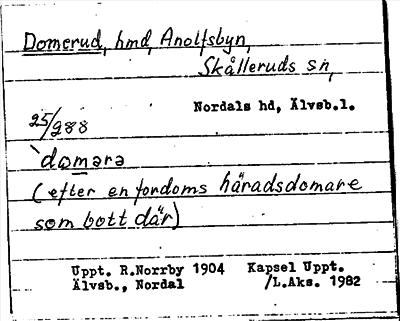 Domerud, hmd, Anolfsbyn,
Skålleruds sn,
Nordals hd, Älvsb.l.
25/988
`domərə
(efter en fordoms häradsdomare
som bott där)
Uppt. R.Norrby 1904 Kapsel Uppt.
Älvsb., Nordal /L.Aks. 1982